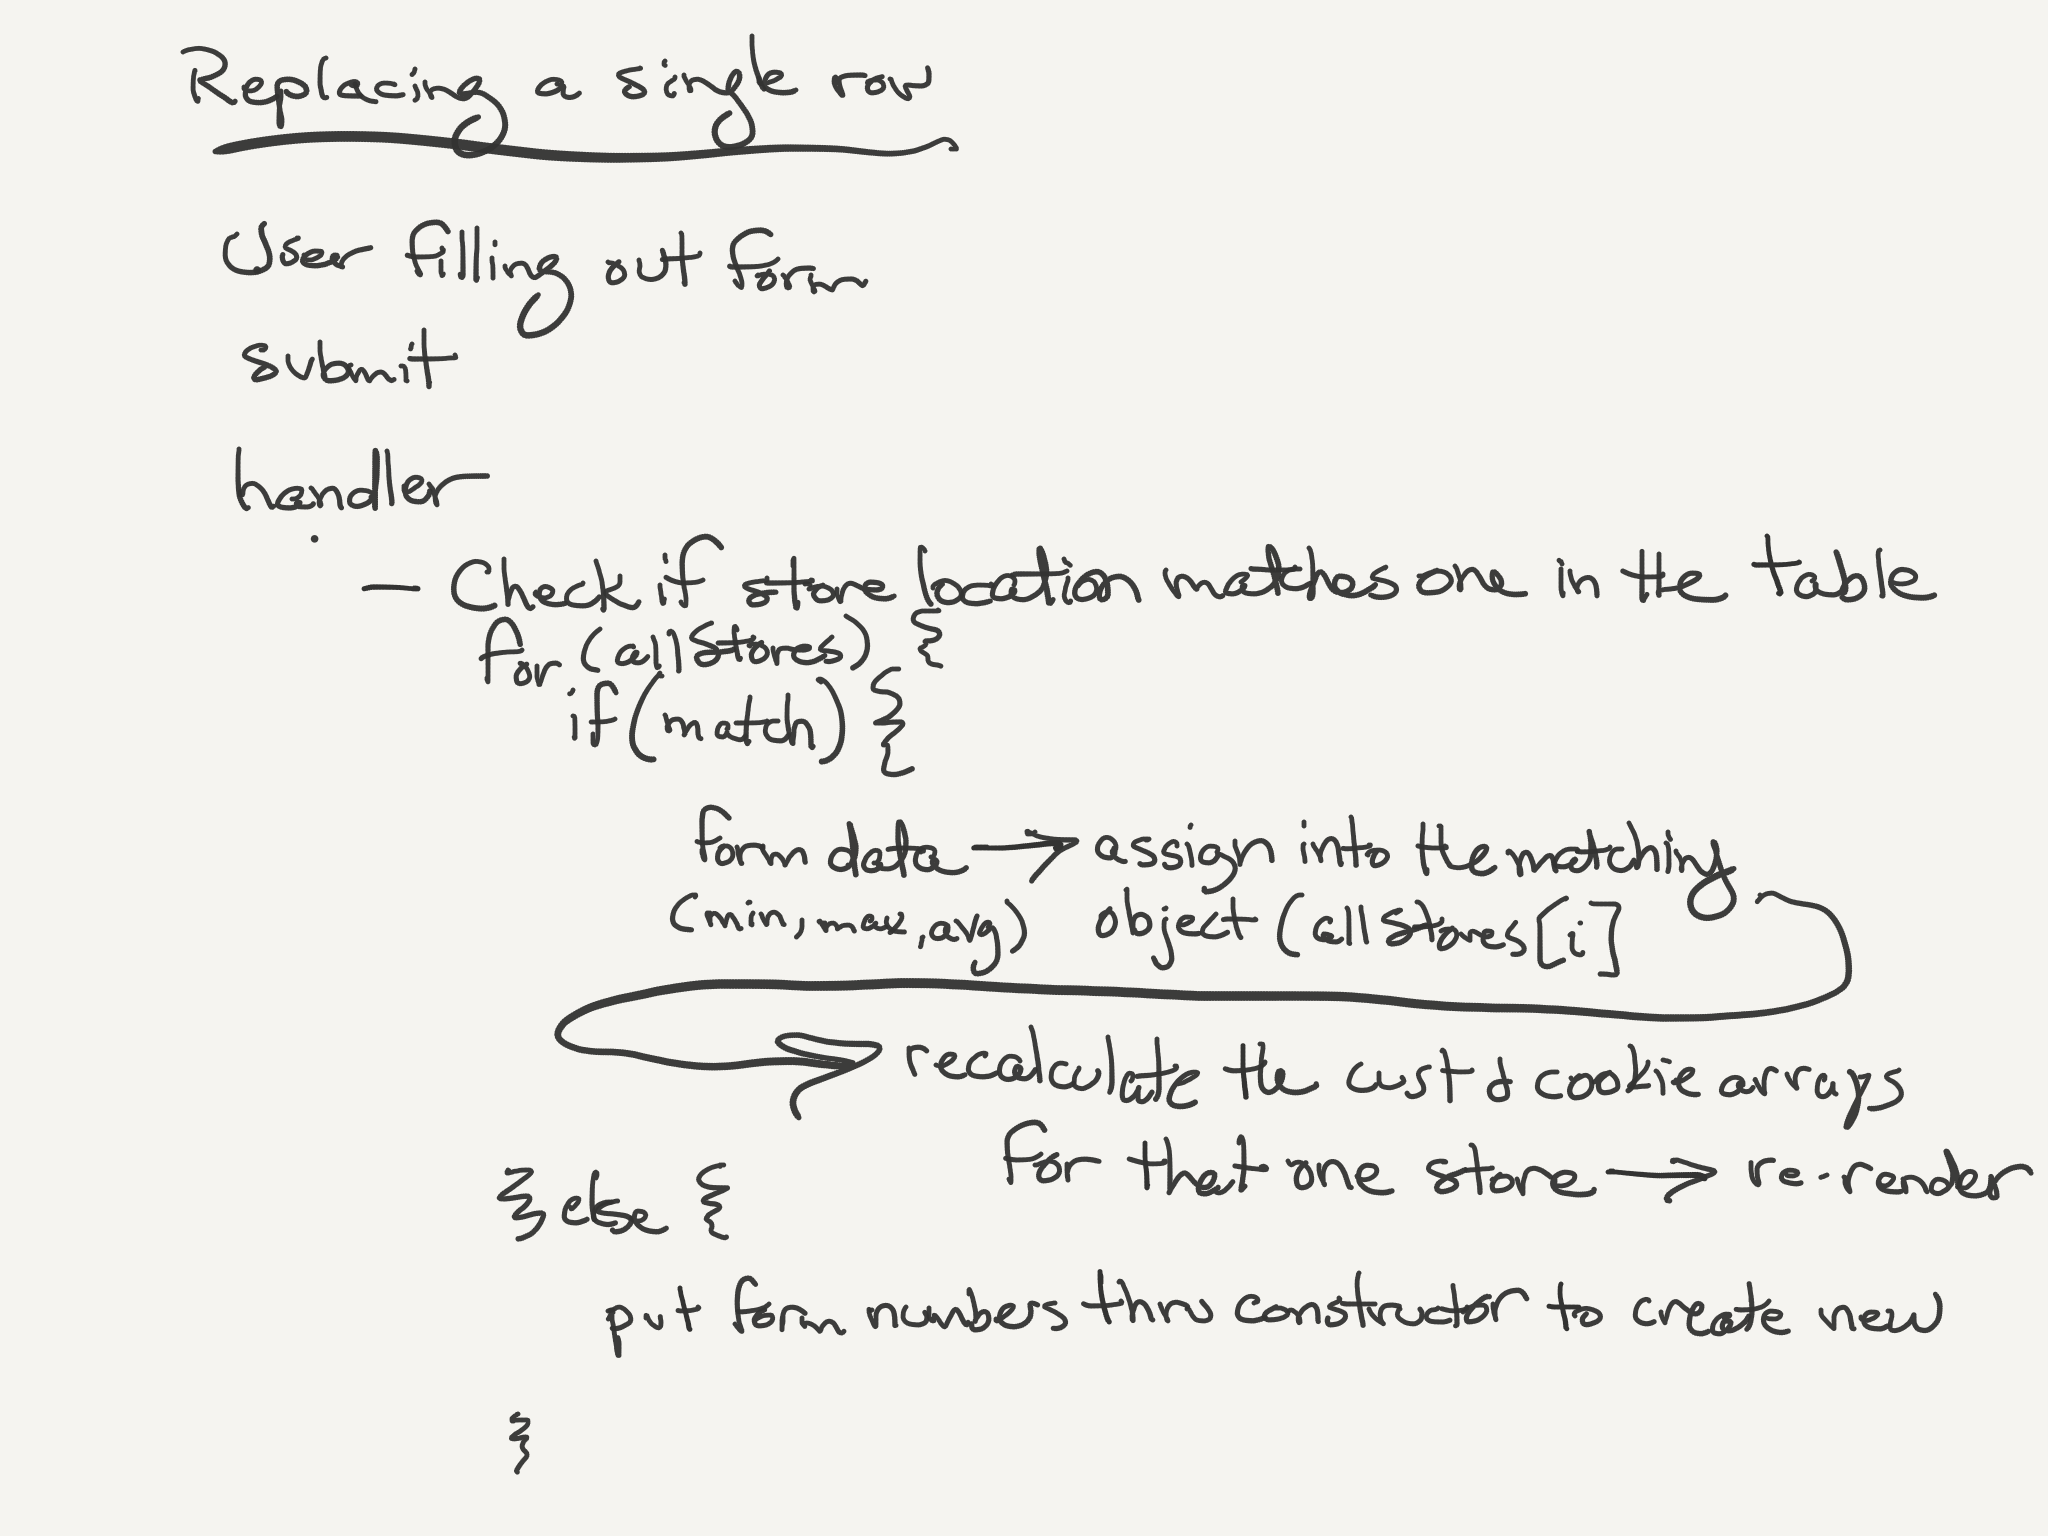 Replacing a single row
User filling out form
submit
handler
- Check if store location matches one in the table
for (allStores) {
if (match) {
form data → assign into the matching
(min, max, avg) object (allStores[i]
recalculate the cust & cookie arrays
for that one store → re-render
} else {
put form numbers thru constructor to create new
}